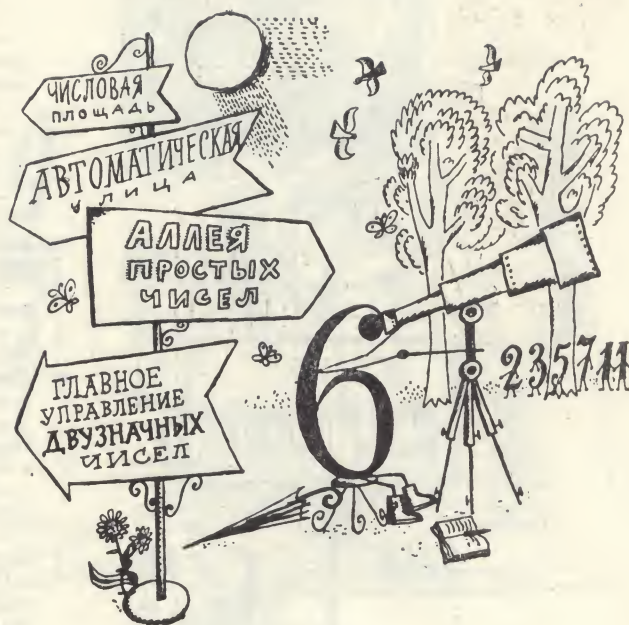 ЧИСЛОВАЯ
ПЛОЩАДЬ
АВТОМАТИЧЕСКАЯ
УЛИЦА
АЛЛЕЯ
ПРОСТЫХ
ЧИСЕЛ
ГЛАВНОЕ
УПРАВЛЕНИЕ
ДВУЗНАЧНЫХ
ЧИСЕЛ
6
2 3 5 7 11